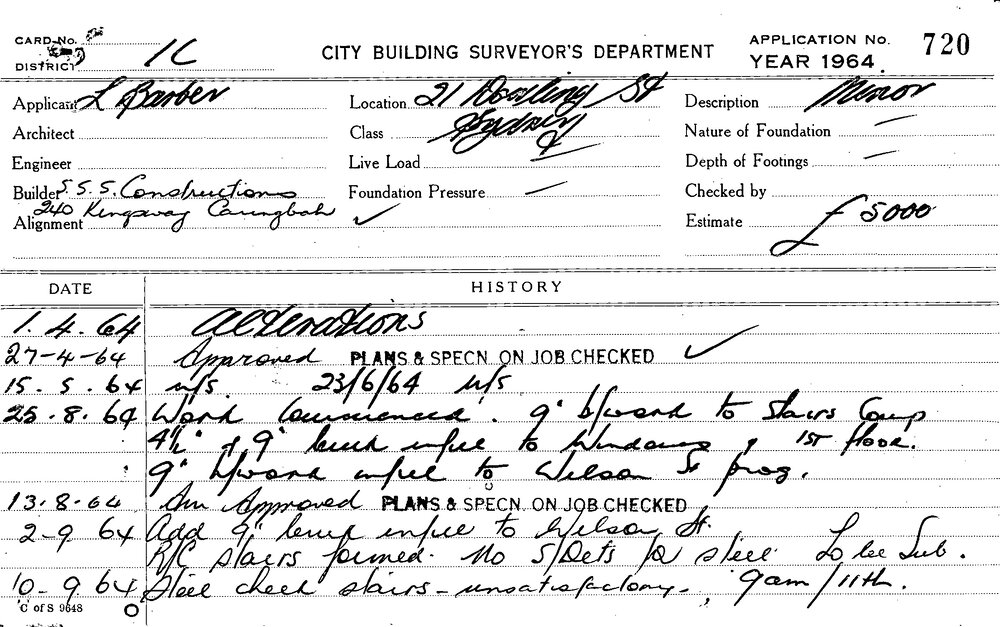 CARD No.
DISTRICT 1C
CITY BUILDING SURVEYOR'S DEPARTMENT
APPLICATION No. 720
YEAR 1964
Applicant L Barber
Location 21 Dowling St
Sydney
Description Minor
Architect
Class
Nature of Foundation —
Engineer
Live Load
Depth of Footings —
Builder S.S.S. Constructions
240 Kingsway Caringbah
Foundation Pressure —
Checked by
Alignment ✓
Estimate £ 5000
DATE HISTORY
1. 4. 64 Alterations
27-4-64 Approved PLANS & SPECN. ON JOB CHECKED ✓
15. 5. 64 n/s. 23/6/64 n/s
25. 8. 64 Work Commenced. 9" b/work to stairs Comp
4½" & 9" brick infill to Windows, 1st floor.
9" b/work infill to Wilson St prog.
13.8.64 Am Approved PLANS & SPECN. ON JOB CHECKED
2-9 64 Add 9" brick infill to Wilson St.
R/C stairs formed. No S/Dets for steel. To be Sub.
10. 9 64 Steel check stairs - unsatisfactory -, 9am/11th.
C of S 9648